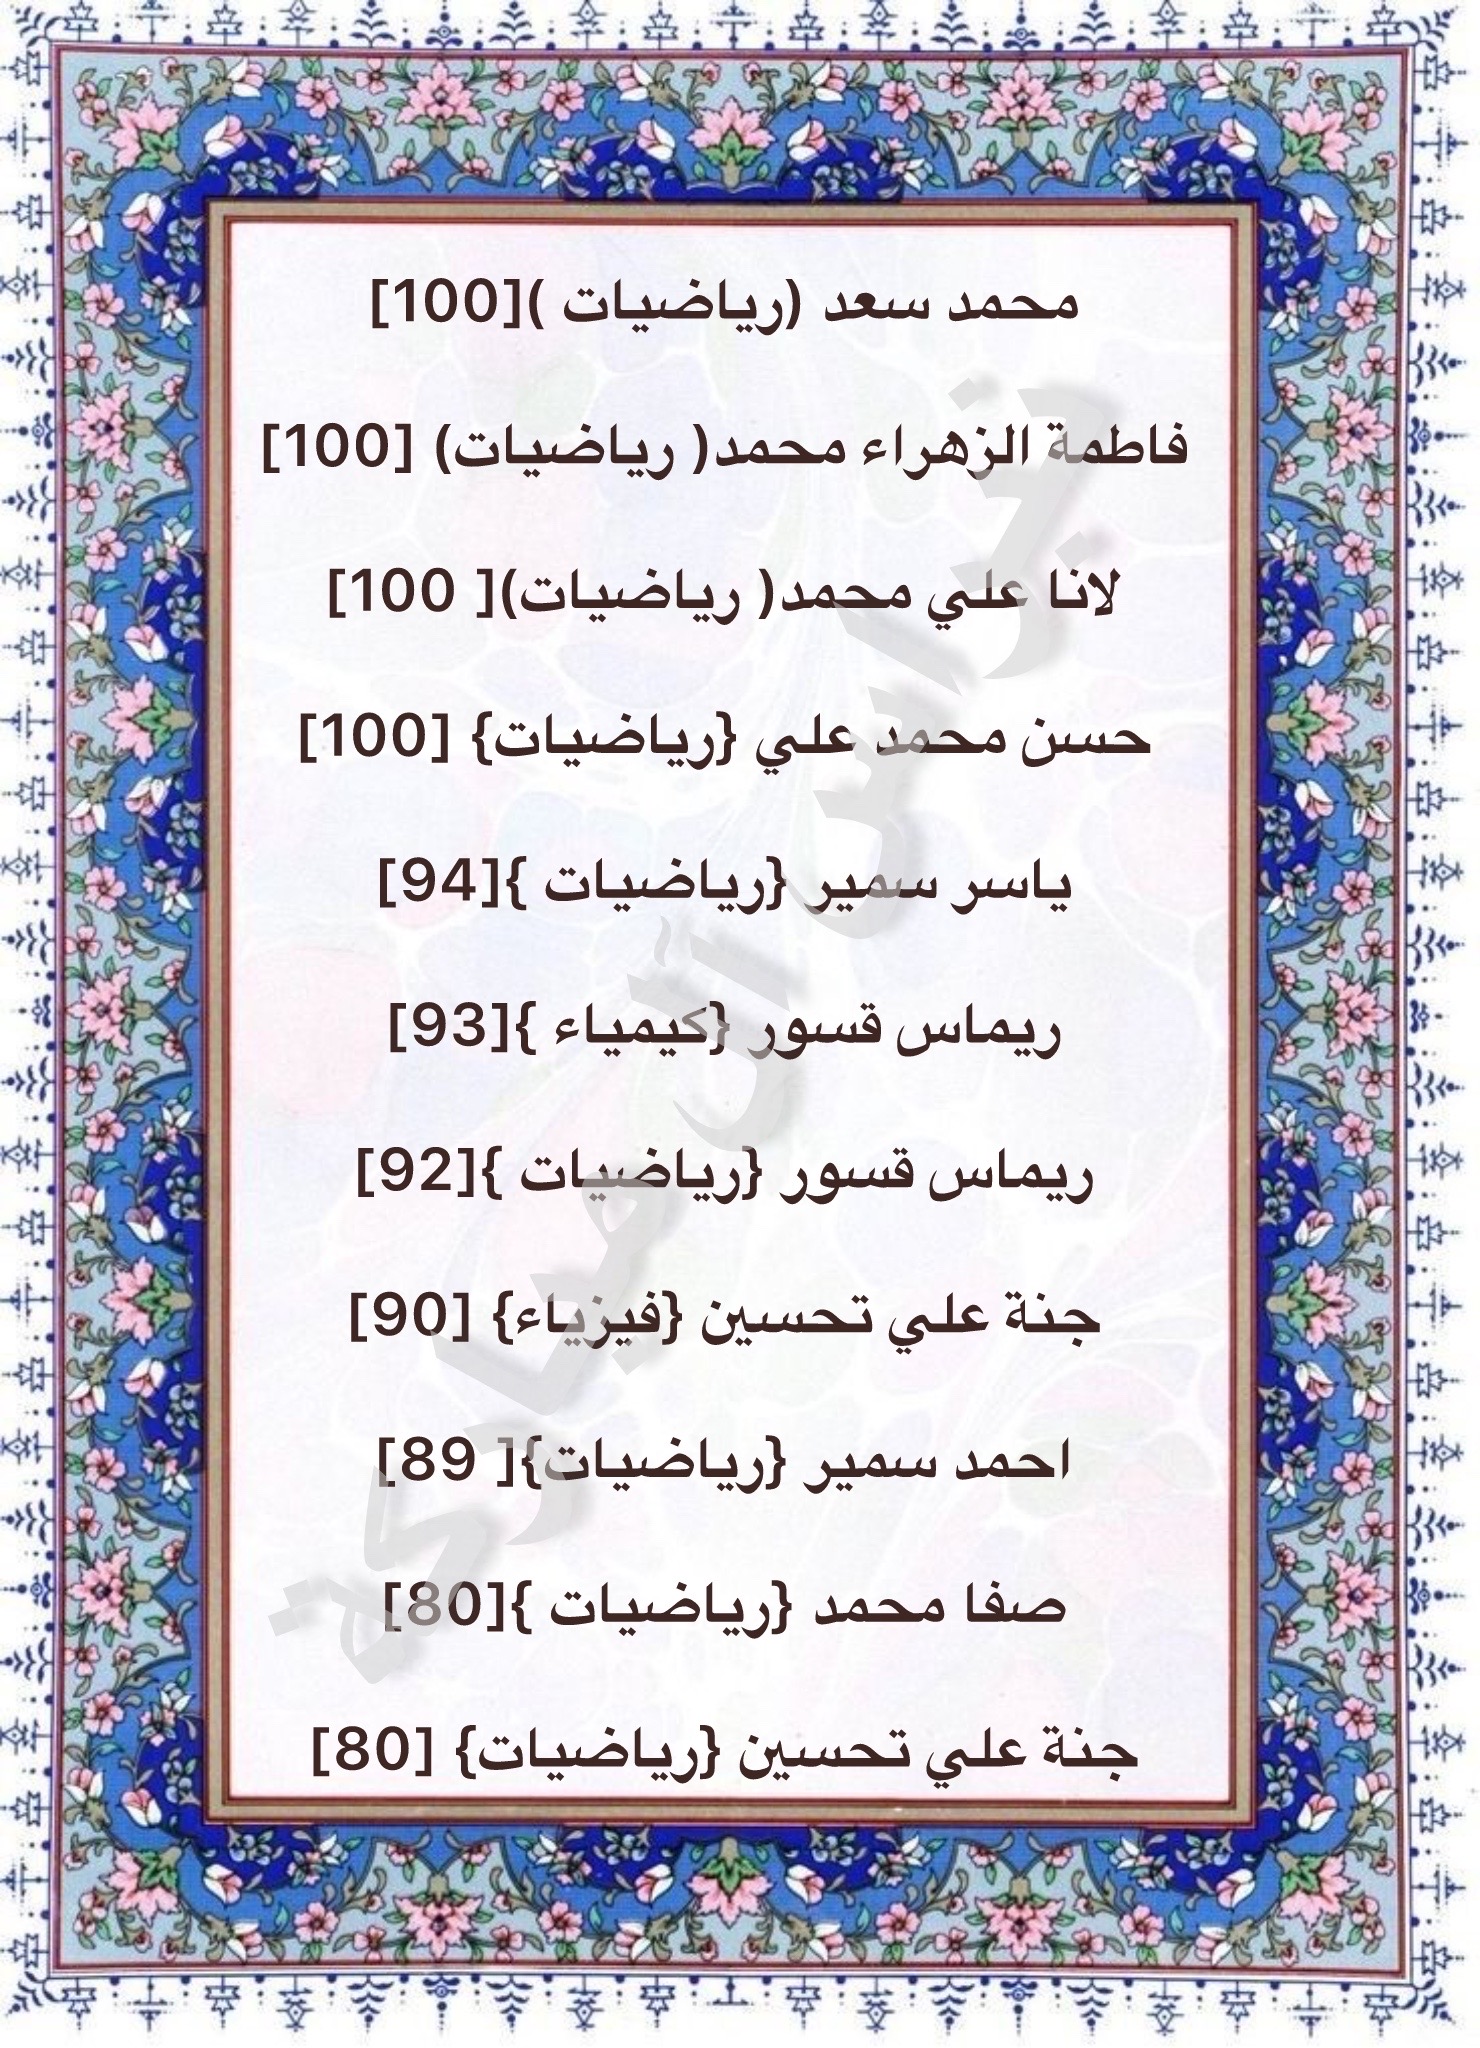 محمد سعد (رياضيات )[100]
فاطمة الزهراء محمد( رياضيات) [100]
لانا علي محمد( رياضيات)[ 100]
حسن محمد علي {رياضيات} [100]
ياسر سمير {رياضيات }[94]
ريماس قسور {كيمياء }[93]
ريماس قسور {رياضيات }[92]
جنة علي تحسين {فيزياء} [90]
احمد سمير {رياضيات}[ 89]
صفا محمد {رياضيات }[80]
جنة علي تحسين {رياضيات} [80]
آل مباركة